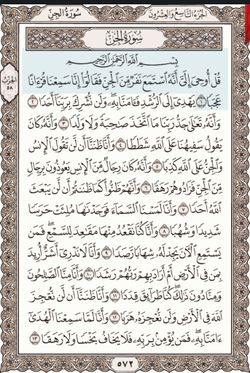 سُورَةُ الجِنِّ
الجُزْءُ التَّاسِعُ وَالعِشْرُونَ
سُورَةُ الجِنِّ
بِسْمِ اللَّهِ الرَّحْمَٰنِ الرَّحِيمِ
قُلْ أُوحِيَ إِلَيَّ أَنَّهُ اسْتَمَعَ نَفَرٌ مِّنَ الْجِنِّ فَقَالُوا إِنَّا سَمِعْنَا قُرْآنًا
عَجَبًا ١ يَهْدِي إِلَى الرُّشْدِ فَآمَنَّا بِهِ وَلَن نُّشْرِكَ بِرَبِّنَا أَحَدًا ٢
وَأَنَّهُ تَعَالَىٰ جَدُّ رَبِّنَا مَا اتَّخَذَ صَاحِبَةً وَلَا وَلَدًا ٣ وَأَنَّهُ كَانَ
يَقُولُ سَفِيهُنَا عَلَى اللَّهِ شَطَطًا ٤ وَأَنَّا ظَنَنَّا أَن لَّن تَقُولَ الْإِنسُ
وَالْجِنُّ عَلَى اللَّهِ كَذِبًا ٥ وَأَنَّهُ كَانَ رِجَالٌ مِّنَ الْإِنسِ يَعُوذُونَ بِرِجَالٍ
مِّنَ الْجِنِّ فَزَادُوهُمْ رَهَقًا ٦ وَأَنَّهُمْ ظَنُّوا كَمَا ظَنَنتُمْ أَن لَّن يَبْعَثَ
اللَّهُ أَحَدًا ٧ وَأَنَّا لَمَسْنَا السَّمَاءَ فَوَجَدْنَاهَا مُلِئَتْ حَرَسًا
شَدِيدًا وَشُهُبًا ٨ وَأَنَّا كُنَّا نَقْعُدُ مِنْهَا مَقَاعِدَ لِلسَّمْعِ فَمَن
يَسْتَمِعِ الْآنَ يَجِدْ لَهُ شِهَابًا رَّصَدًا ٩ وَأَنَّا لَا نَدْرِي أَشَرٌّ أُرِيدَ
بِمَن فِي الْأَرْضِ أَمْ أَرَادَ بِهِمْ رَبُّهُمْ رَشَدًا ١٠ وَأَنَّا مِنَّا الصَّالِحُونَ
وَمِنَّا دُونَ ذَٰلِكَ كُنَّا طَرَائِقَ قِدَدًا ١١ وَأَنَّا ظَنَنَّا أَن لَّن نُّعْجِزَ
اللَّهَ فِي الْأَرْضِ وَلَن نُّعْجِزَهُ هَرَبًا ١٢ وَأَنَّا لَمَّا سَمِعْنَا الْهُدَىٰ
آمَنَّا بِهِ فَمَن يُؤْمِن بِرَبِّهِ فَلَا يَخَافُ بَخْسًا وَلَا رَهَقًا ١٣
الحزب
٥٨
٥٧٢